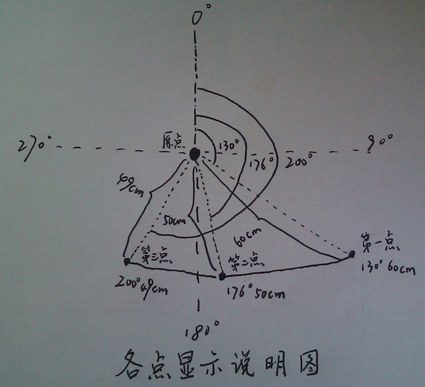 0°
原点
270°
130°
176°
200°
90°
49cm
50cm
60cm
第一点
130° 60cm
第三点
第二点
200° 49cm
176° 50cm
180°
各点显示说明图